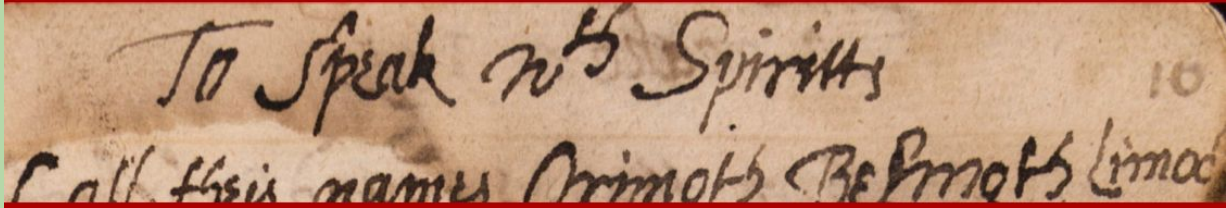 To Speak wth Spiritts
Call their names Orimoth Belmoth Limoc